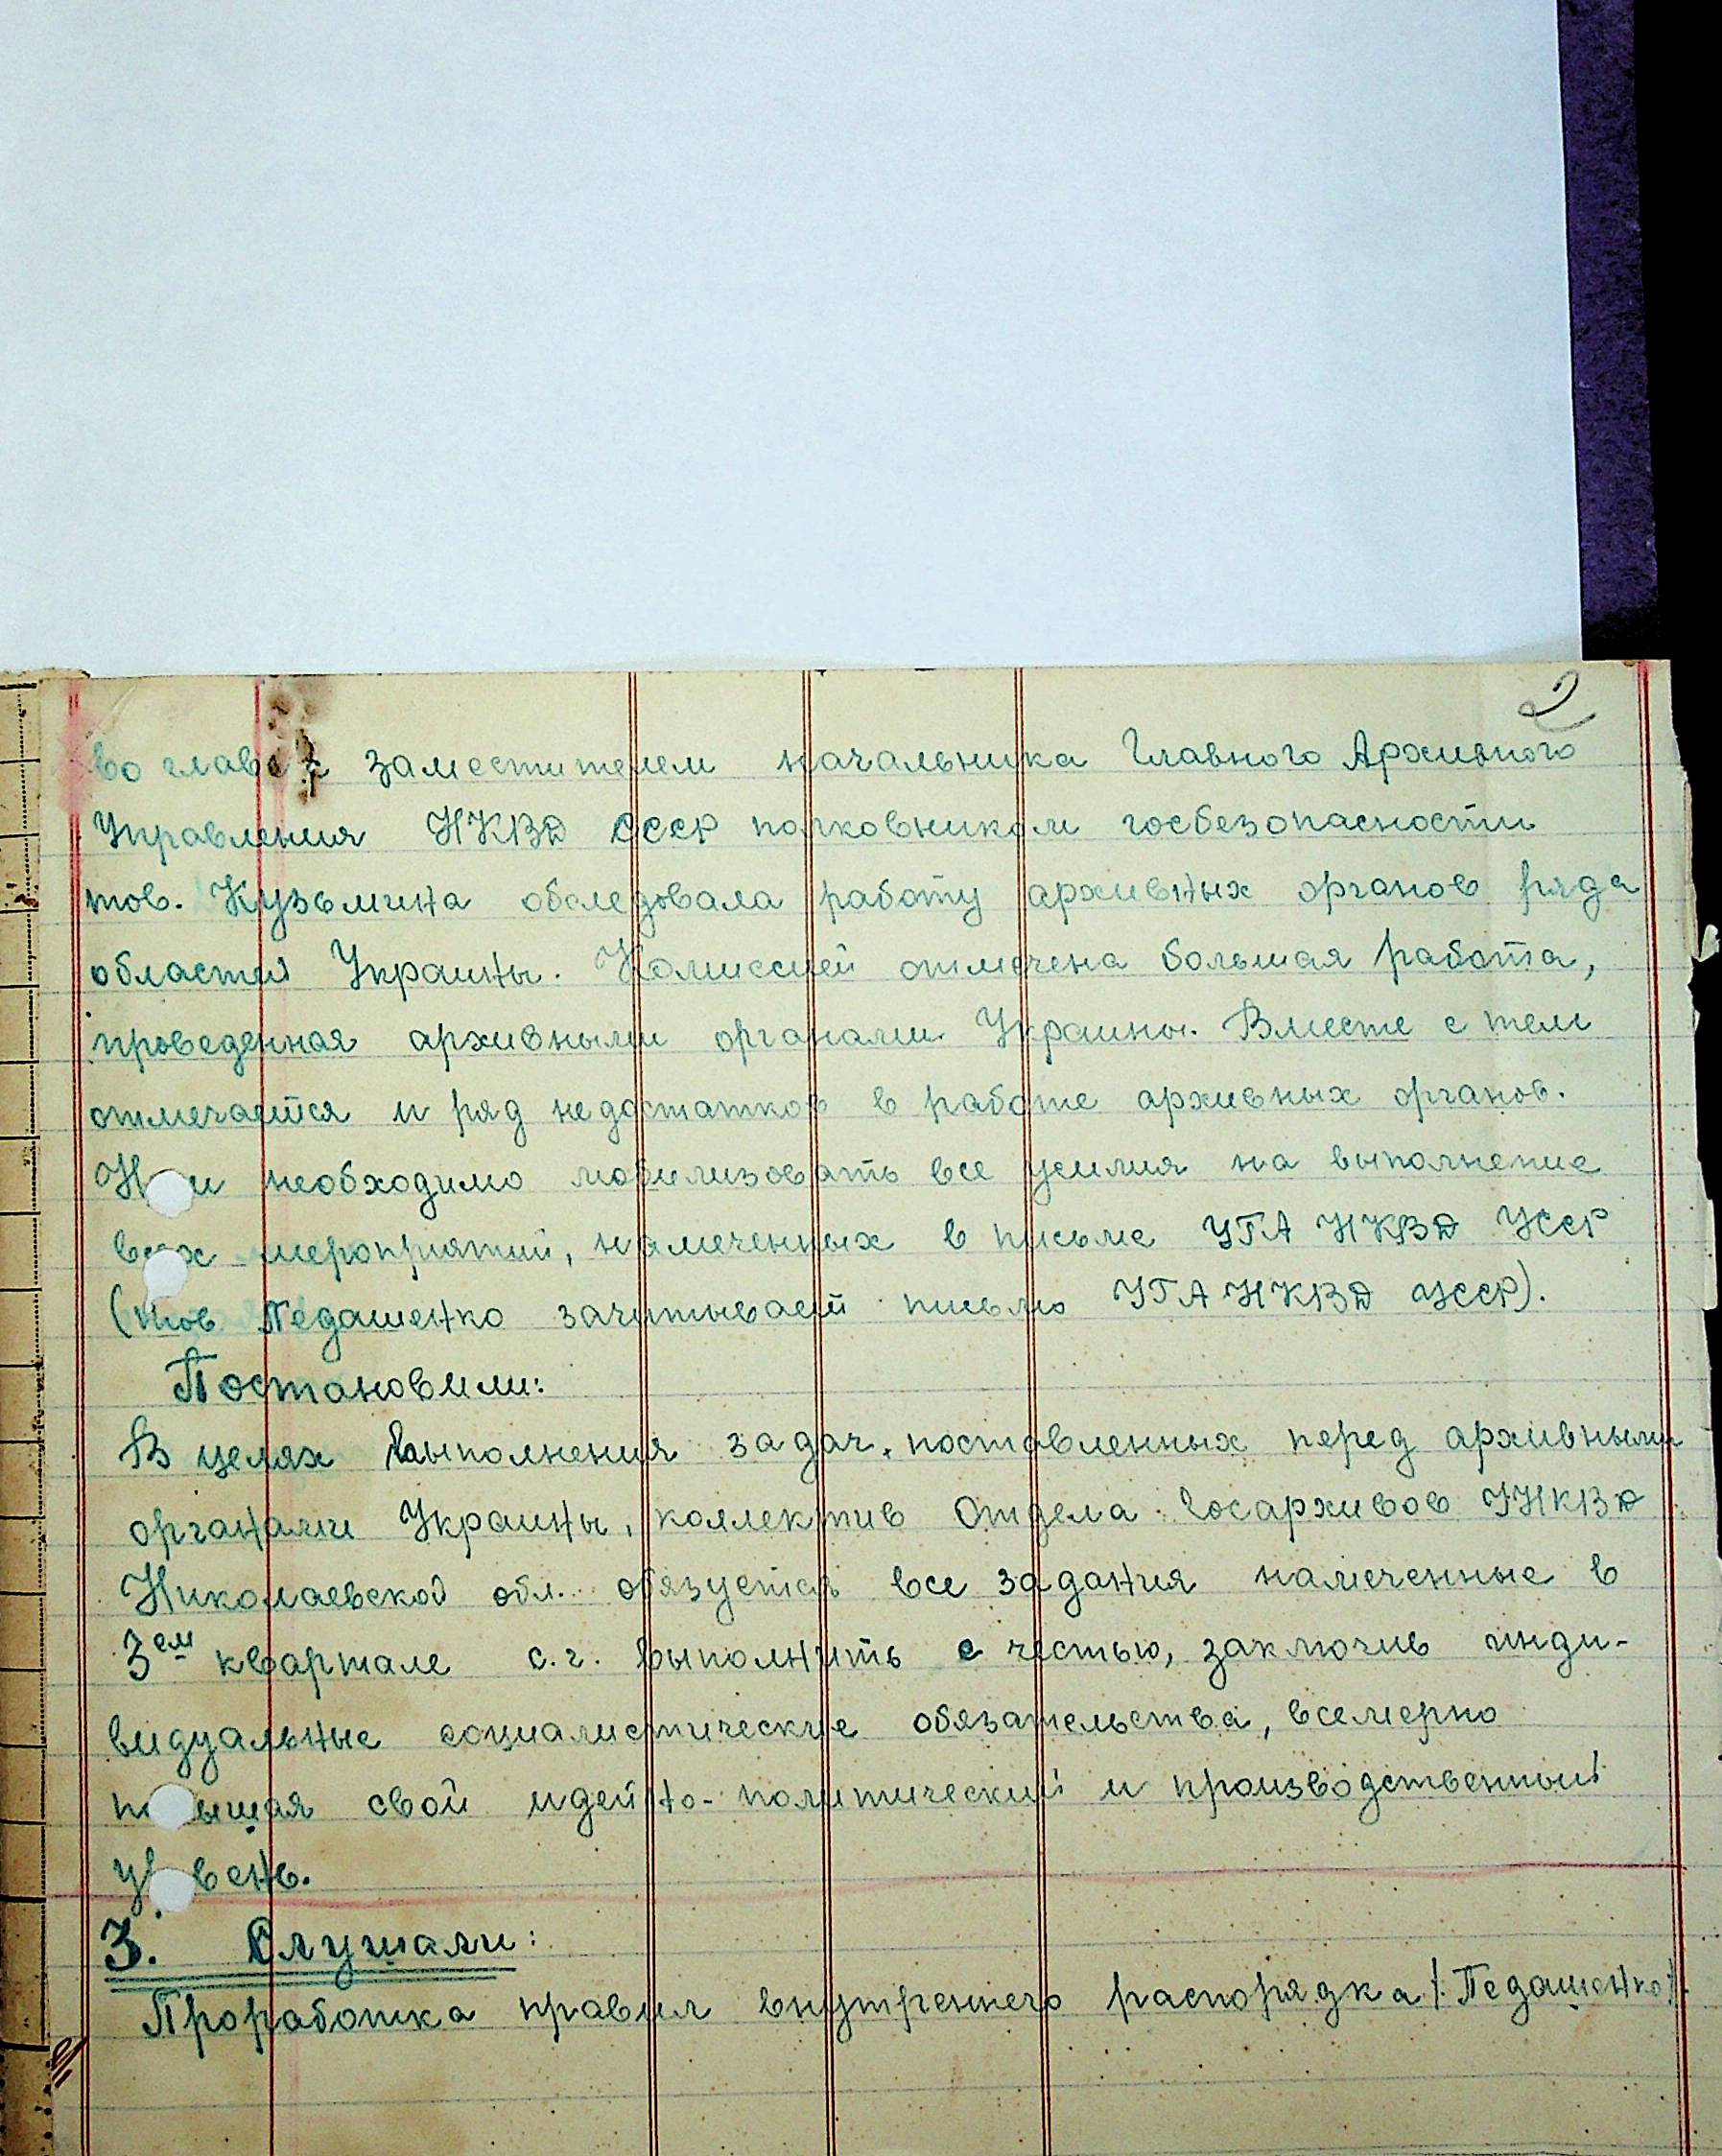 2
во главе с заместителем начальника Главного Архивного
Управления НКВД СССР полковником госбезопасности
тов. Кузьмина обследовала работу архивных органов ряда
областей Украины. Комиссией отмечена большая работа,
проведенная архивными органами Украины. Вместе с тем
отмечается и ряд недостатков в работе архивных органов.
Нам необходимо мобилизовать все усилия на выполнение
всех мероприятий, намеченных в письме УГА НКВД УССР
(тов Педашенко зачитывает письмо УГА НКВД УССР).
Постановили:
В целях выполнения задач, поставленных перед архивными
органами Украины, коллектив Отдела Госархивов УНКВД
Николаевской обл. обязуется все задания намеченные в
3ем квартале с.г. выполнить с честью, заключив инди-
видуальные социалистические обязательства, всемерно
повышая свой идейно-политический и производственный
уровень.
3. Слушали:
Проработка правил внутреннего распорядка /Педашенко/.